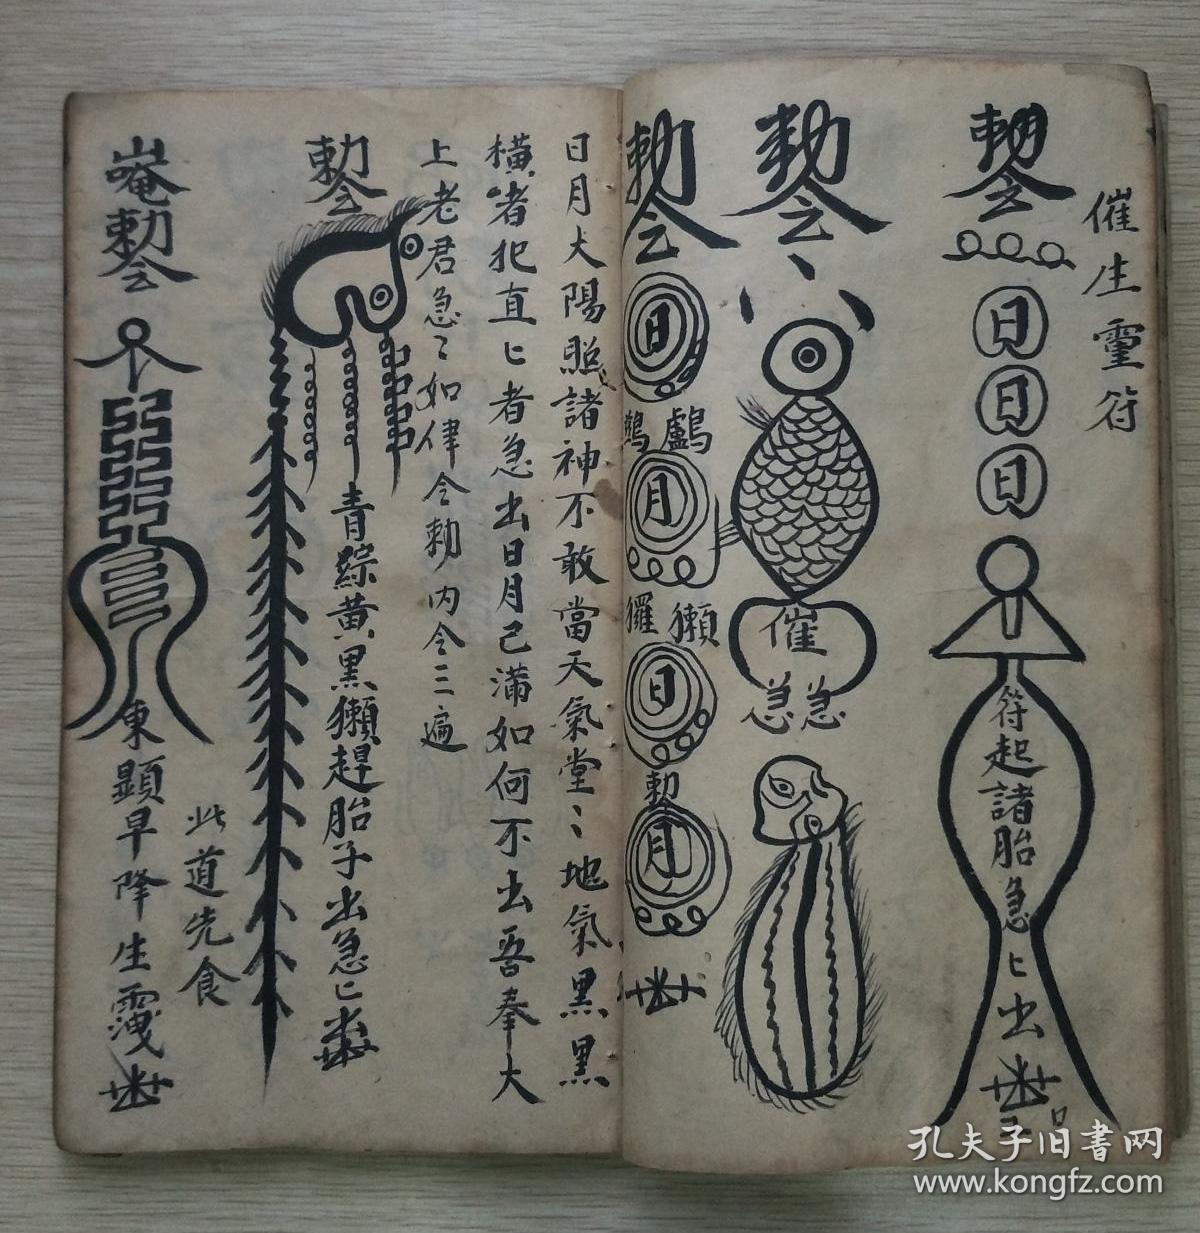 催生靈符
勅令
日
日
日
符起諸胎急匕出
勅令
催
急急
勅令
日
鸕鷀
月
獺玀
日
勅
月
日月太陽照諸神不敢當天氣堂〻地氣黑黑
橫者犯直匕者急出日月己滿如何不出吾奉大
上老君急〻如律令勅內令三遍
勅令
青綜黃黑獺趕胎子出急匕
此道先食
唵勅令
東顕早降生
孔夫子旧书网
www.kongfz.com